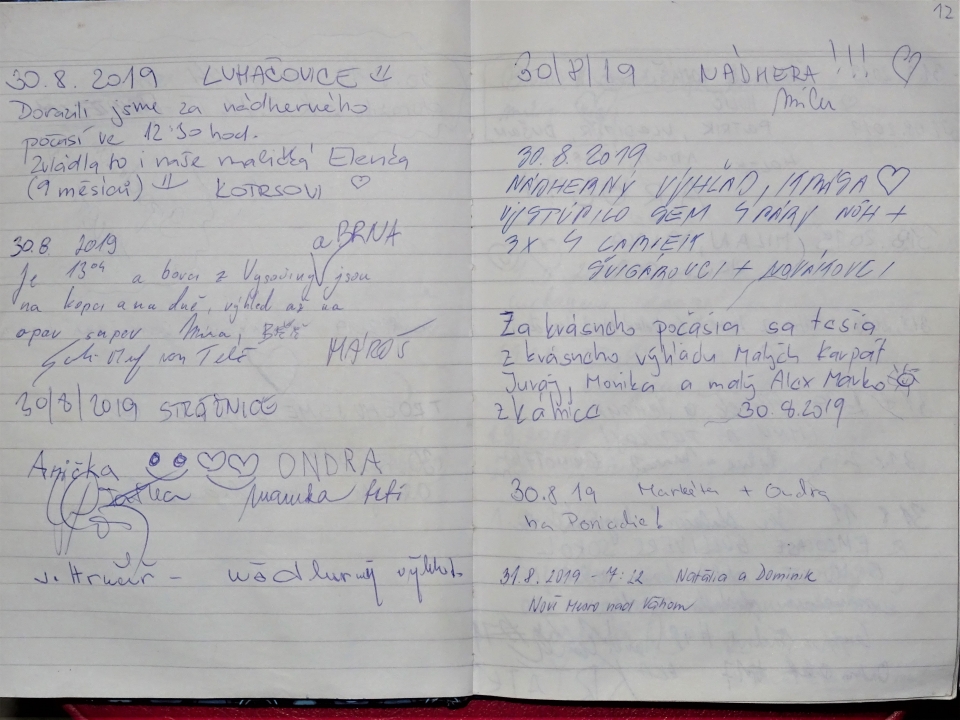 30.8. 2019 LUHAČOVICE
Dorazili jsme za nádherného
počasí ve 12:30 hod.
Zvládla to i naše maličká Elenka
(9 měsíců) KOTRSOVI
30.8 2019 a BRNA
Je 13 04 a borci z Vysočiny jsou
na kopci a na dně, výhled až na
Míra,
MAROŠ
30/8/2019 STRÁŽNICE
Anička ONDRA
mamka teti
výhled
12
30/8/19 NÁDHERA !!!
30.8.2019
NÁDHERNÝ VÝHĽAD, KRÁSA
VYSTÚPILO SEM 4 PÁRY NÔH +
3X 4 LABIEK
ŠVIGÁROVCI + NOVÁKOVCI
Za krásneho počasia sa tešia
z krásneho výhľadu Malých Karpát
Juraj, Monika a malý Alex Marko
30.8.2019
30.8 19 Markéta + Ondra
na Poriadie!
31.8.2019 - 7:22 Natália a Dominik
Nové Mesto nad Váhom